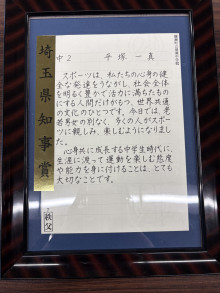 埼玉県知事賞
中2 平塚一真
スポーツは、私たちの心身の健
全な発達をうながし、社会全体
を明るく豊かで活力に満ちたもの
にする人間だけがもつ、世界共通
の文化のひとつです。今日では、老
若男女の別なく、多くの人がスポー
ツに親しみ、楽しむようになりました。
心身共に成長する中学生時代に、
生涯に渡って運動を楽しむ態度
や能力を身に付けることは、とても
大切なことです。
秩父